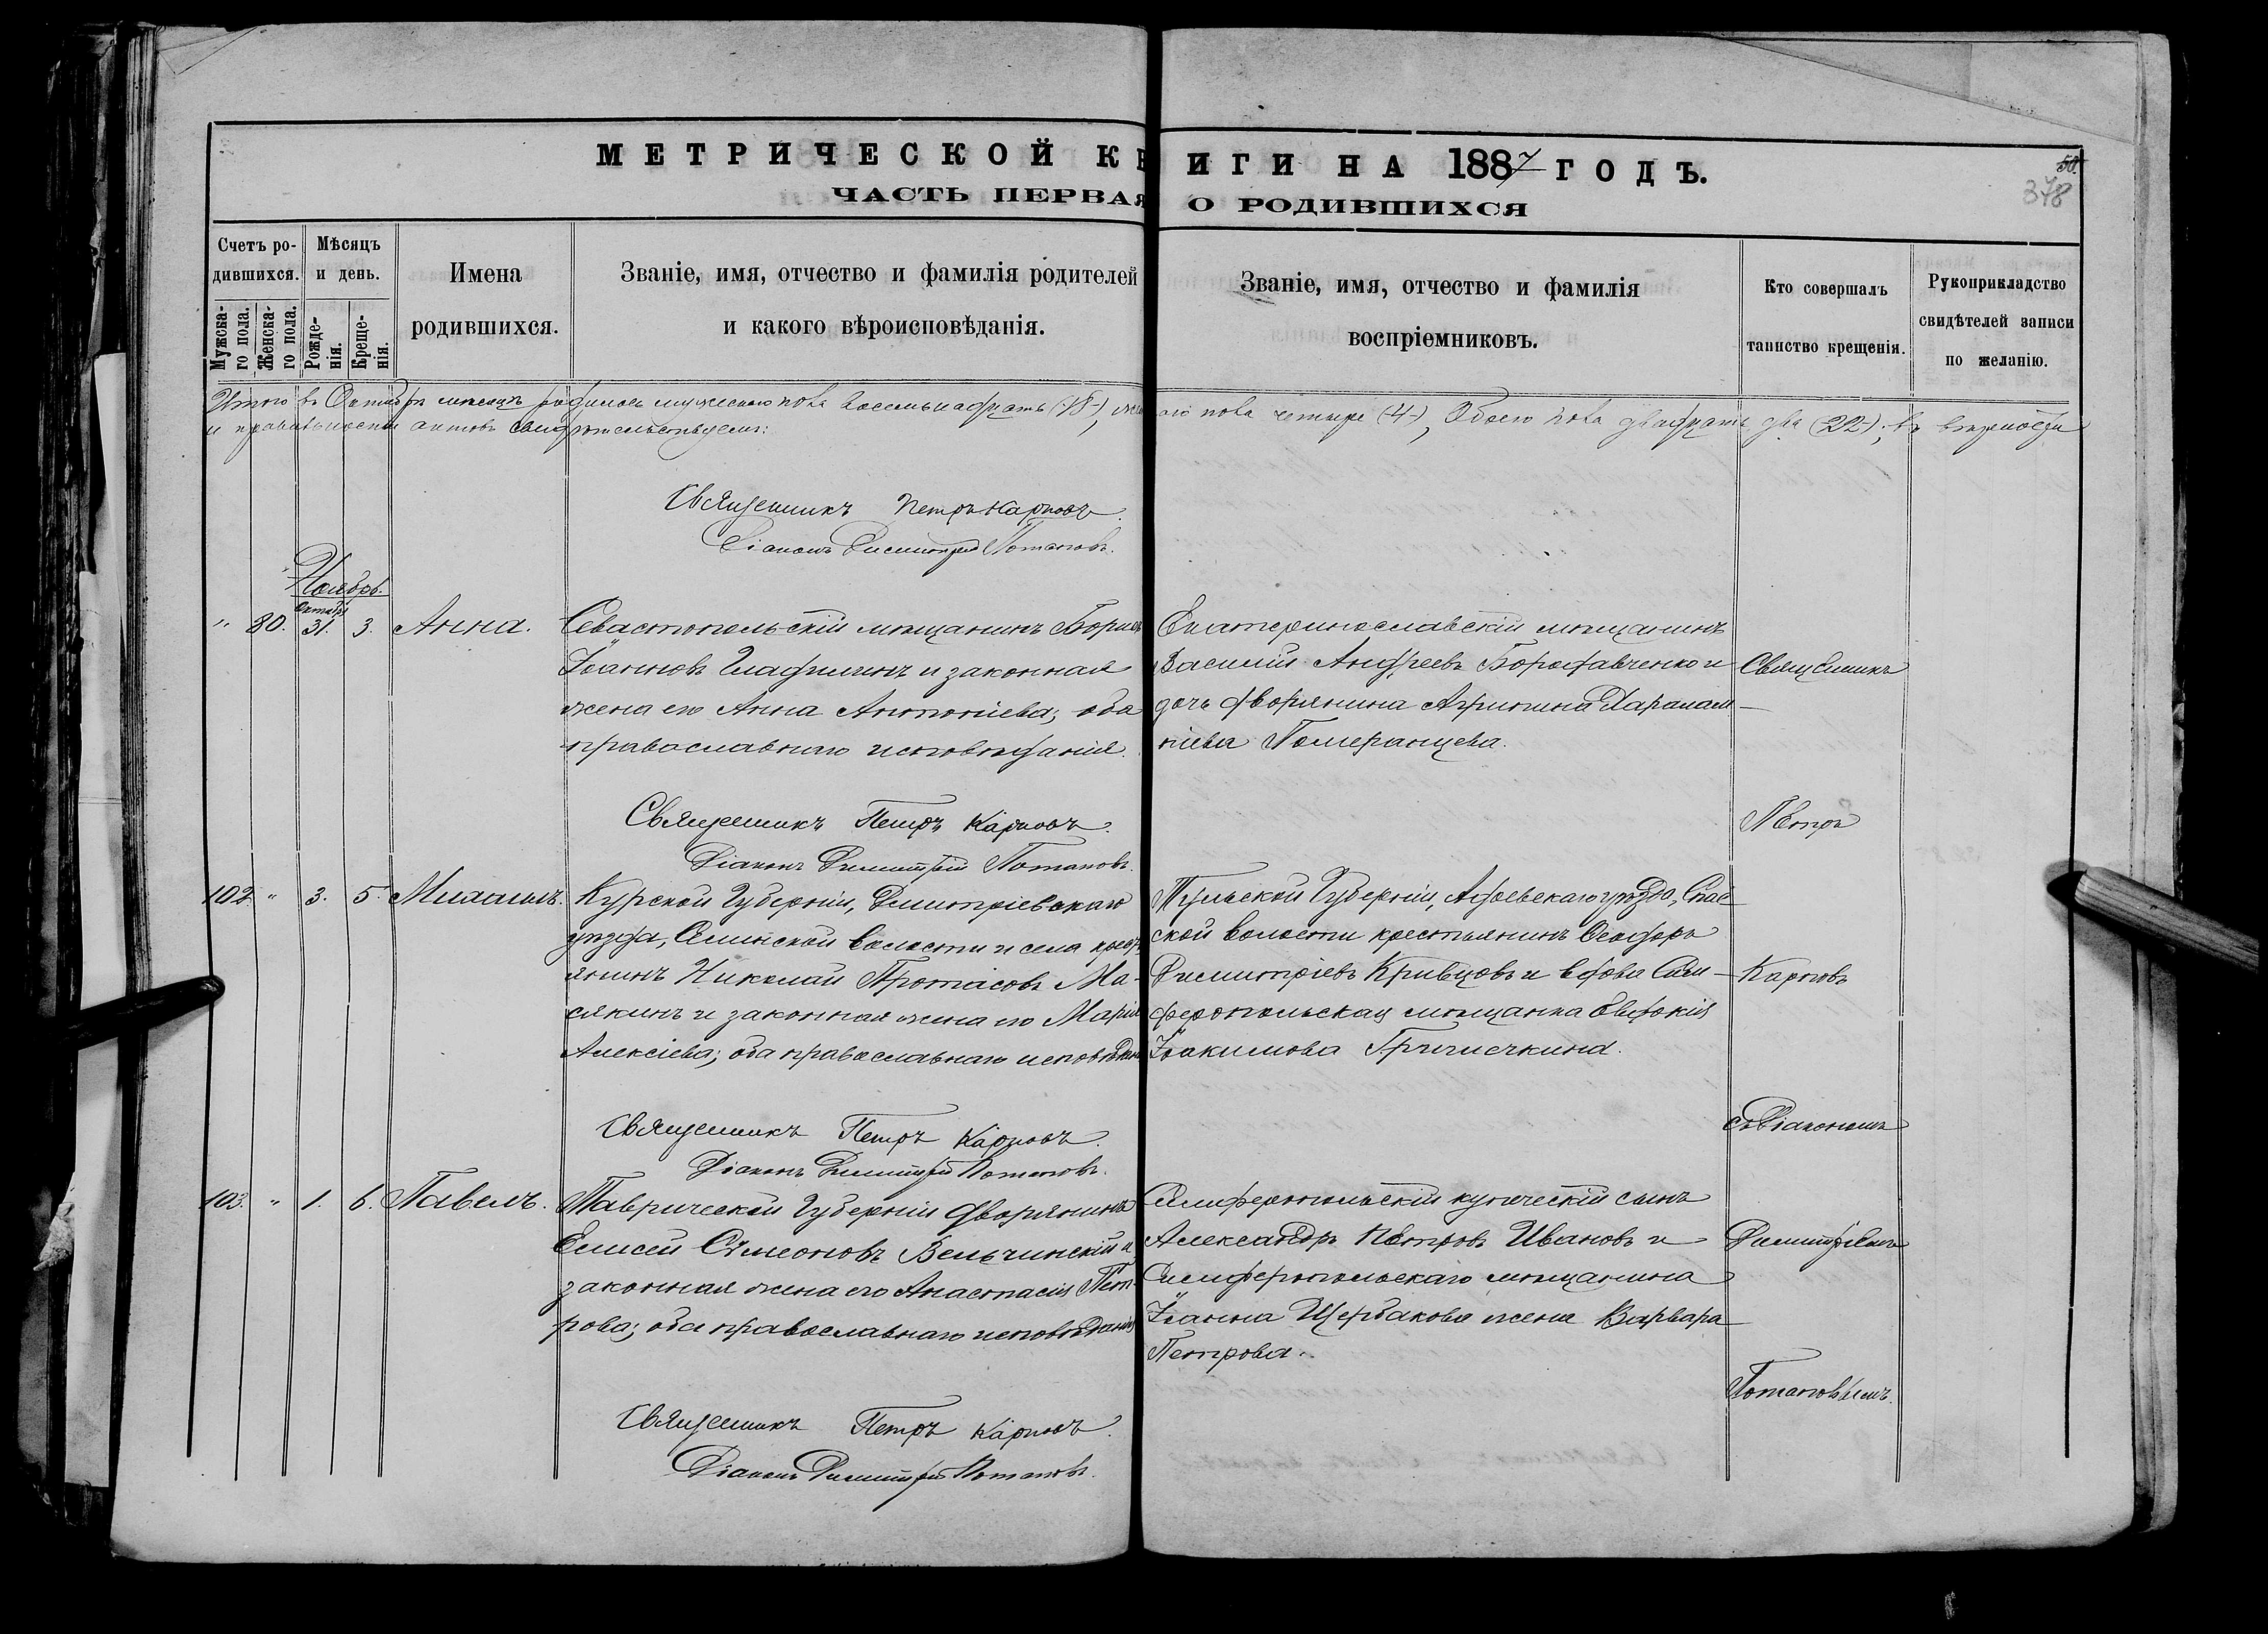 МЕТРИЧЕСКОЙ КНИГИ НА 1887 ГОДЪ.
ЧАСТЬ ПЕРВАЯ О РОДИВШИХСЯ
50.
378
Счетъ родившихся.
Мужскаго пола.
Женскаго пола.
Мѣсяцъ и день.
Рожденія.
Крещенія.
Имена родившихся.
Званіе, имя, отчество и фамилія родителей
и какого вѣроисповѣданія.
Званіе, имя, отчество и фамилія
воспріемниковъ.
Кто совершалъ
таинство крещенія.
Рукоприкладство
свидѣтелей записи
по желанію.
Итого въ Октябрѣ мѣсяцѣ родилось мужескаго пола восемьнадцать (18), женскаго пола четыре (4), Обоего пола двадцать два (22); въ вѣрности
и правильности актовъ свидѣтельствуемъ:
Священникъ Петръ Карповъ.
Діаконъ Димитрій Потаповъ.
Ноябрь.
Октября
" 80. 31. 3. Анна.
Севастопольскій мѣщанинъ Борисъ
Іоанновъ и законная
жена его Анна Антоніева; оба
православнаго исповѣданія.
Екатеринославскій мѣщанинъ
Василій Андреевъ и
дочь дворянина Агрипина Харалам-
піева Померанцева.
Священникъ Петръ Карповъ.
Діаконъ Димитрій Потаповъ.
102. " 3. 5. Михаилъ.
Курской Губерніи, Димитріевскаго
уѣзда, волости и села крестьянинъ
Николай Протасовъ Ма-
сякинъ и законная жена его Марія
Алексіева; оба православнаго исповѣдан
Тульской Губерніи, уѣзда, Спас-
ской волости крестьянинъ Ѳеодоръ
Димитріевъ Кривцовъ и вдова Сим-
феропольская мѣщанка Евдокія
Іоакимова Гричичкина.
Священникъ Петръ Карповъ.
Діаконъ Димитрій Потаповъ.
103. " 1. 6. Павелъ.
Таврической Губерніи дворянинъ
Елисей Симеоновъ Вельчинскій и
законная жена его Анастасія Пет-
рова; оба православнаго исповѣданія
Симферопольскій купеческій сынъ
Александръ Петровъ Ивановъ и
Симферопольскаго мѣщанина
Іоанна Щербакова жена Варвара
Петрова.
Священникъ Петръ Карповъ.
Діаконъ Димитрій Потаповъ.
Священникъ
Петръ
Карповъ
съ Діакономъ
Димитріемъ
Потаповымъ.